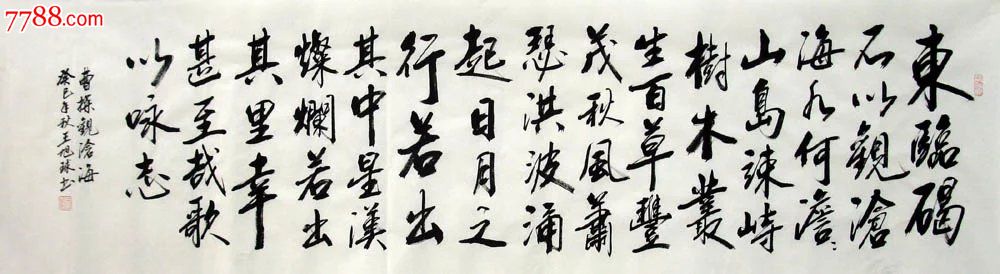 東臨碣
石以觀滄
海水何澹〻
山島竦峙
樹木叢
生百草豐
茂秋風蕭
瑟洪波涌
起日月之
行若出
其中星漢
燦爛若出
其里幸
甚至哉歌
以咏志
曹操觀滄海
癸巳年秋王旭珠书
7788.com